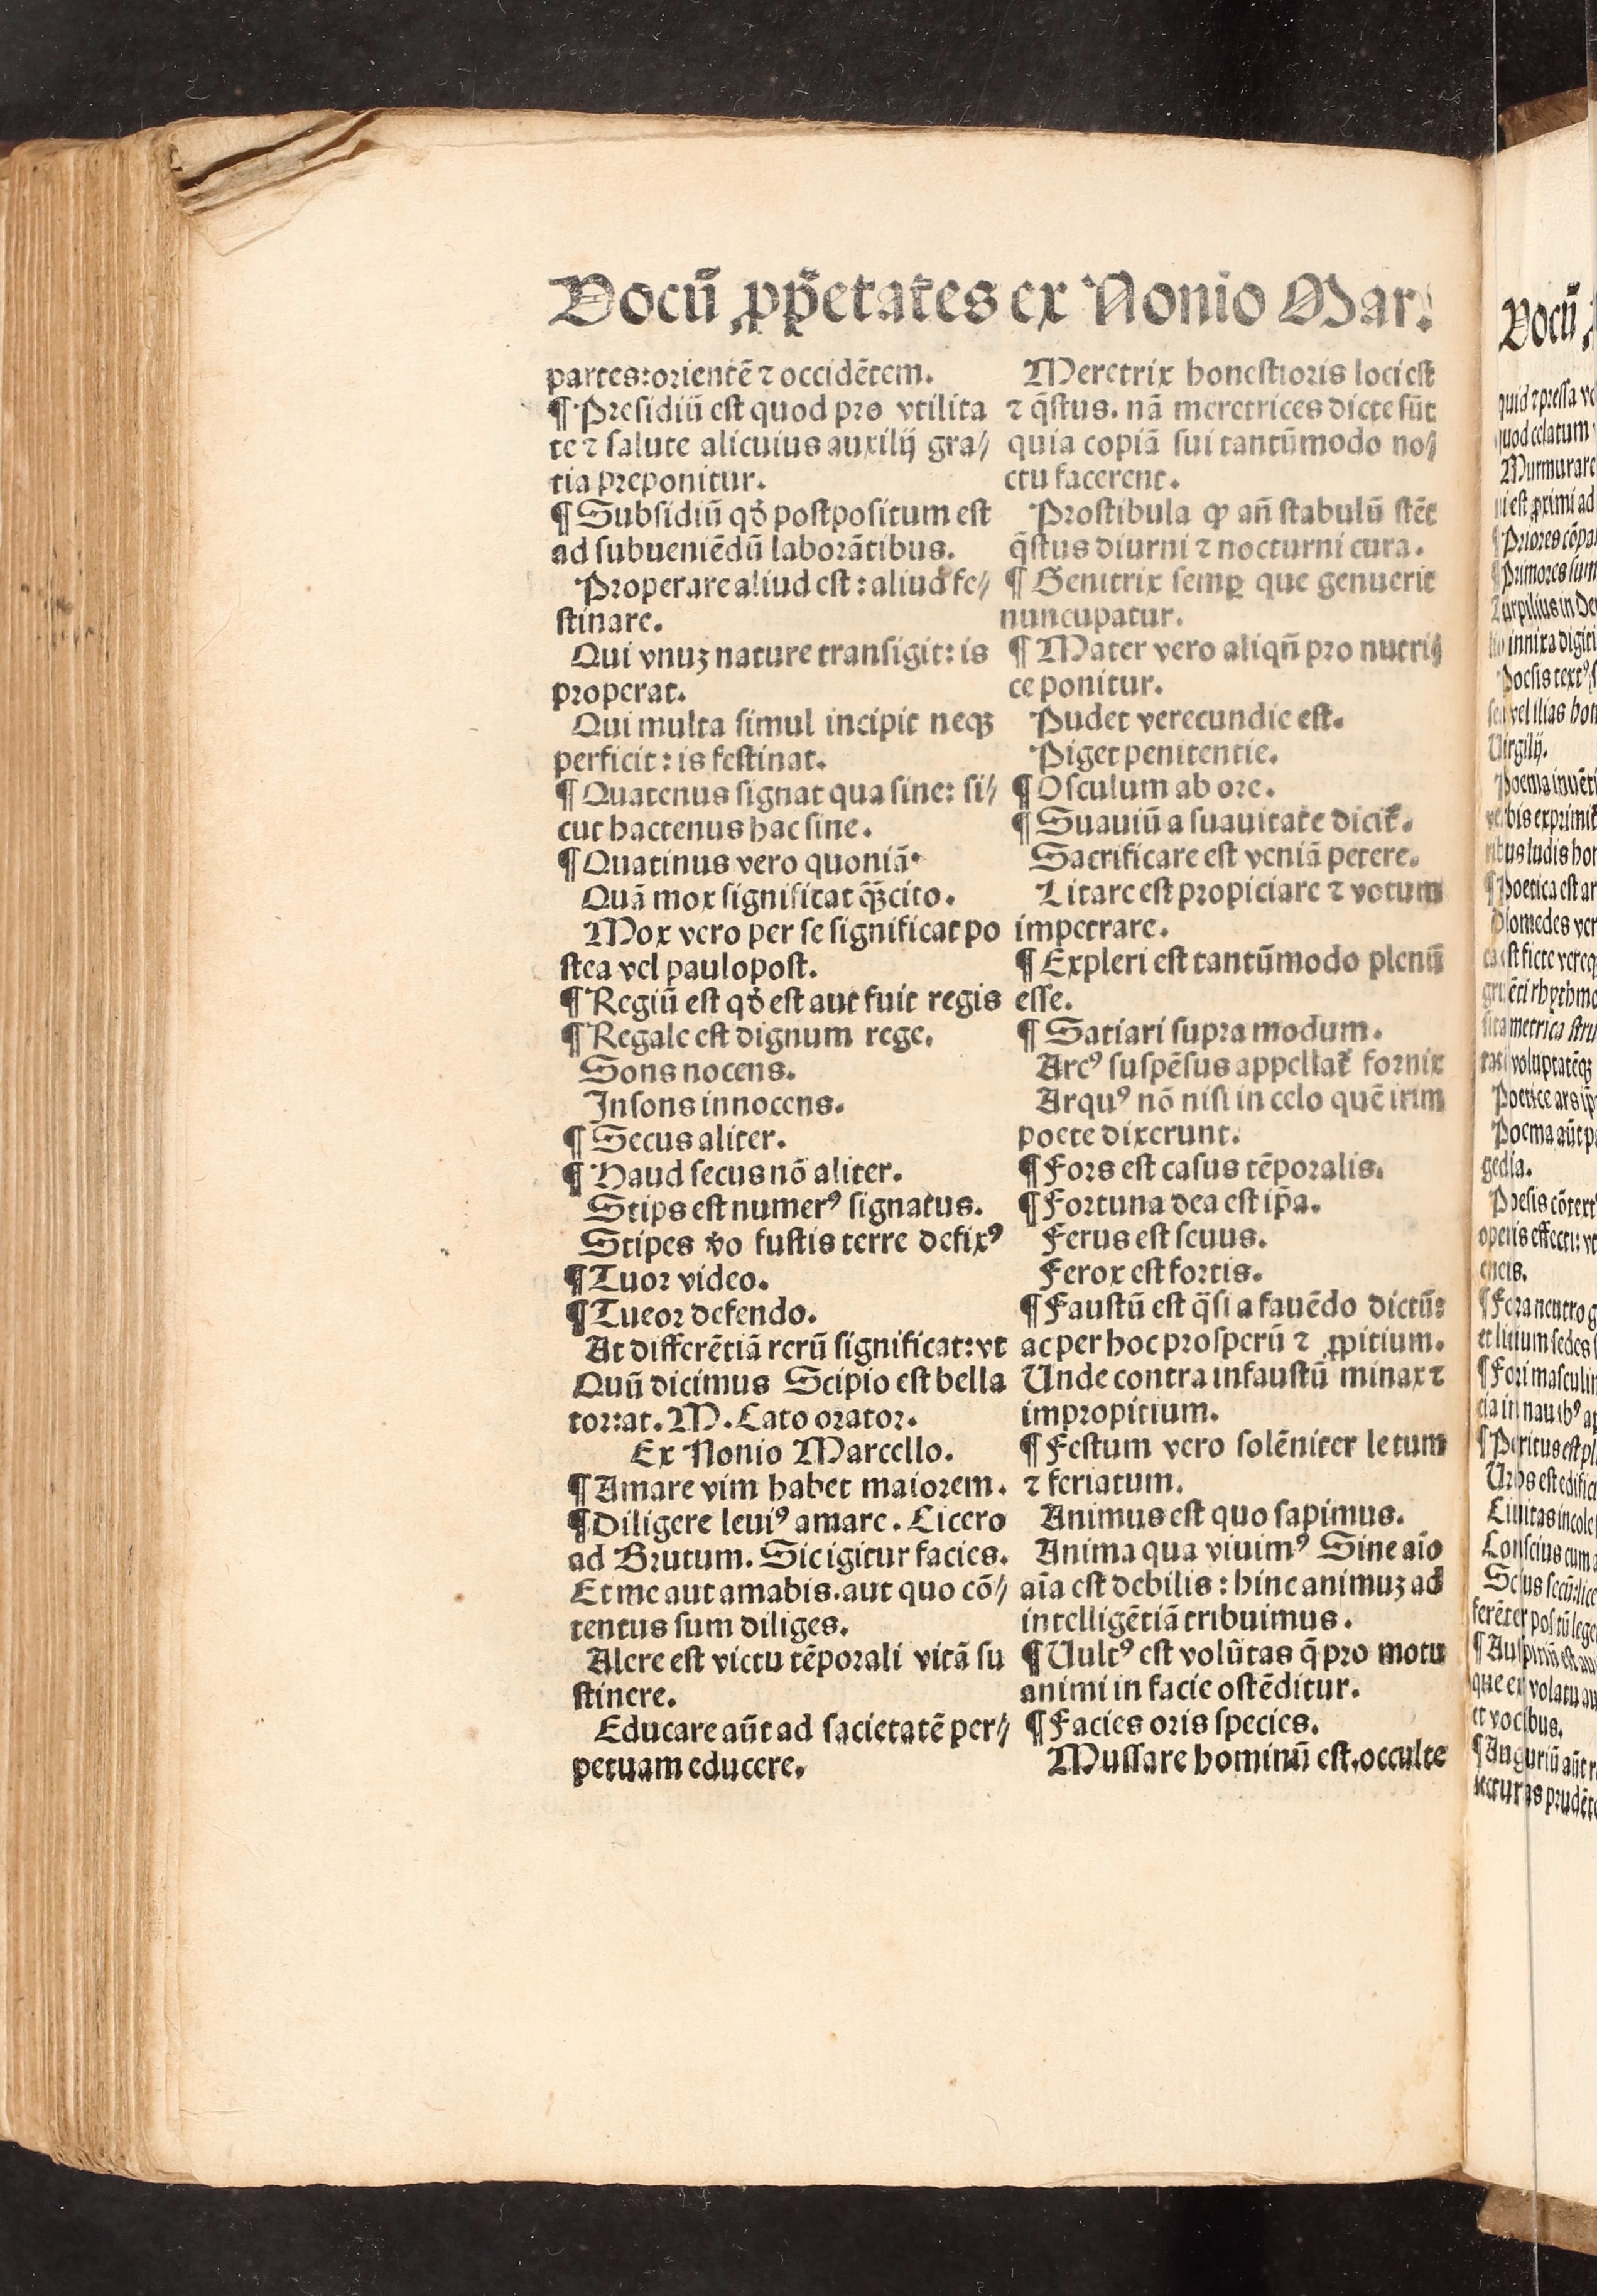 Vocũ ꝓp̃etates ex Nonio Mar.
partes: orientẽ ⁊ occidẽtem.
¶ Presidiũ est quod pro vtilita
te ⁊ salute alicuius auxilij gra⸗
tia preponitur.
¶ Subsidiũ qđ postpositum est
ad subueniẽdũ laborãtibus.
Properare aliud est: aliud fe⸗
stinare.
Qui vnuꝫ nature transigit: is
properat.
Qui multa simul incipit neqꝫ
perficit: is festinat.
¶ Quatenus signat qua sine: si⸗
cut hactenus hac sine.
¶ Quatinus vero quoniã.
Quã mox significat q̃ꝫcito.
Mox vero per se significat po
stea vel paulopost.
¶ Regiũ est qđ est aut fuit regis
¶ Regale est dignum rege.
Sons nocens.
Insons innocens.
¶ Secus aliter.
¶ Haud secus nõ aliter.
Stips est numerꝰ signatus.
Stipes ṽo fustis terre defixꝰ
¶ Tuor video.
¶ Tueor defendo.
At differẽtiã rerũ significat: vt
Quũ dicimus Scipio est bella
tor: at. M. Cato orator.
Ex Nonio Marcello.
¶ Amare vim habet maiorem.
¶ Diligere leuiꝰ amare. Cicero
ad Brutum. Sic igitur facies.
Et me aut amabis. aut quo cõ⸗
tentus sum diliges.
Alere est victu tẽporali vitã su
stinere.
Educare aũt ad sacietatẽ per⸗
petuam educere.
Meretrix honestioris loci est
⁊ q̃stus. nã meretrices dicte sũt
quia copiã sui tantũmodo no⸗
ctu facerent.
Prostibula ꝙ añ stabulũ stẽt
q̃stus diurni ⁊ nocturni cura.
¶ Genitrix semꝑ que genuerit
nuncupatur.
¶ Mater vero aliqñ pro nutri⸗
ce ponitur.
Pudet verecundie est.
Piget penitentie.
¶ Osculum ab ore.
¶ Suauiũ a suauitate dicit̃.
Sacrificare est veniã petere.
Litare est propiciare ⁊ votum
impetrare.
¶ Expleri est tantũmodo plenũ
esse.
¶ Satiari supra modum.
Arcꝰ suspẽsus appellat̃ fornix
Arquꝰ nõ nisi in celo quẽ irim
poete dixerunt.
¶ Fors est casus tẽporalis.
¶ Fortuna dea est ip̃a.
Ferus est seuus.
Ferox est fortis.
¶ Faustũ est q̃si a fauẽdo dictũ:
ac per hoc prosperũ ⁊ ꝓpitium.
Unde contra infaustũ minax ⁊
impropitium.
¶ Festum vero solẽniter letum
⁊ feriatum.
Animus est quo sapimus.
Anima qua viuimꝰ Sine aĩo
aĩa est debilis: hinc animuꝫ ad
intelligẽtiã tribuimus.
¶ Uultꝰ est volũtas q̃ pro motu
animi in facie ostẽditur.
¶ Facies oris species.
Mussare hominũ est. occulte
Vocũ
quid ⁊ pressa
quod celatum
Murmurare